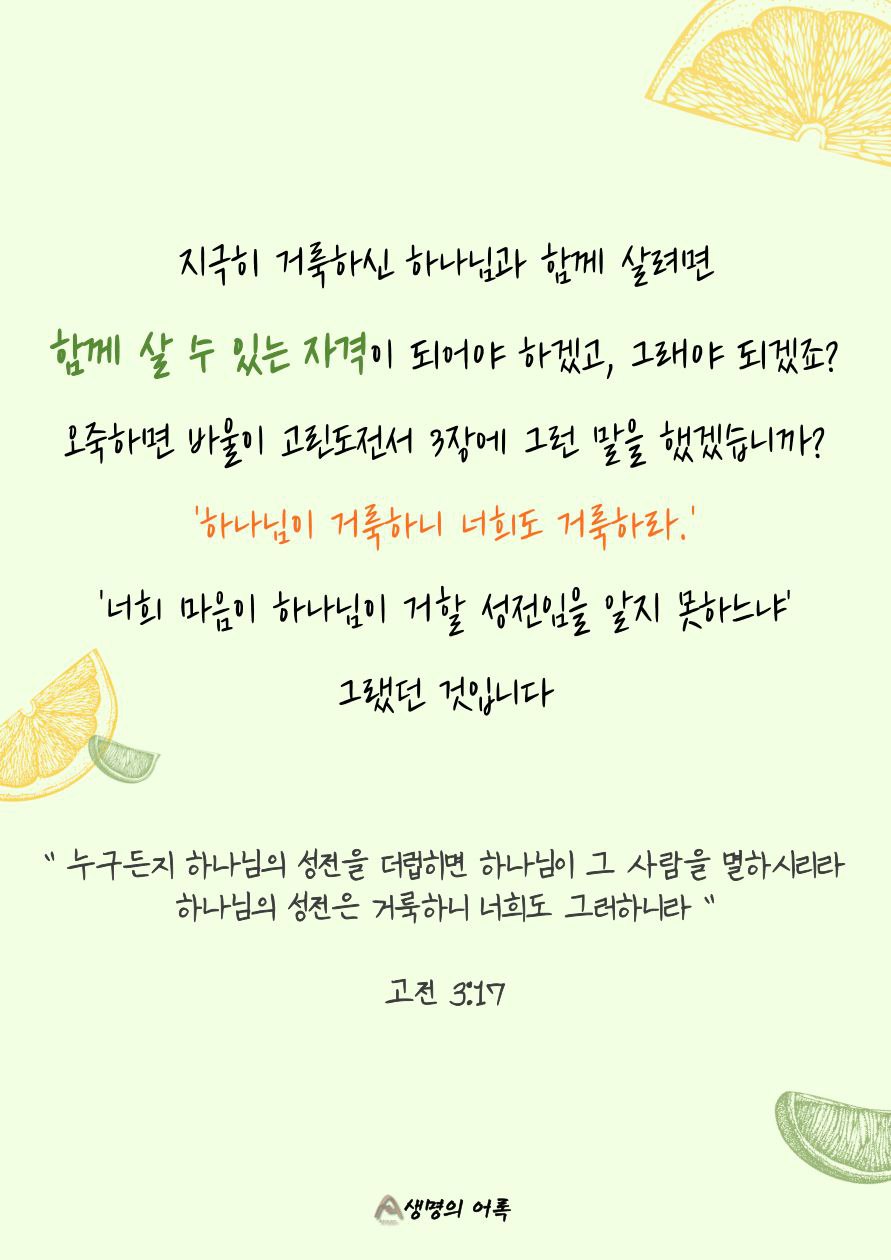 지극히 거룩하신 하나님과 함께 살려면
함께 살 수 있는 자격이 되어야 하겠고, 그래야 되겠죠?
오죽하면 바울이 고린도전서 3장에 그런 말을 했겠습니까?
'하나님이 거룩하니 너희도 거룩하라.'
'너희 마음이 하나님이 거할 성전임을 알지 못하느냐'
그랬던 것입니다
“ 누구든지 하나님의 성전을 더럽히면 하나님이 그 사람을 멸하시리라
하나님의 성전은 거룩하니 너희도 그러하니라 “
고전 3:17
생명의 어록